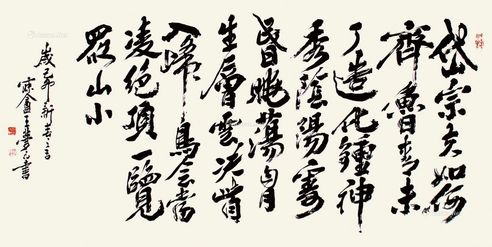 岱宗夫如何
齊魯青未
了造化鍾神
秀陰陽割
昏曉蕩胸
生層雲決眥
入歸鳥會當
凌絕頂一覽
眾山小
歲己卯新春之
書